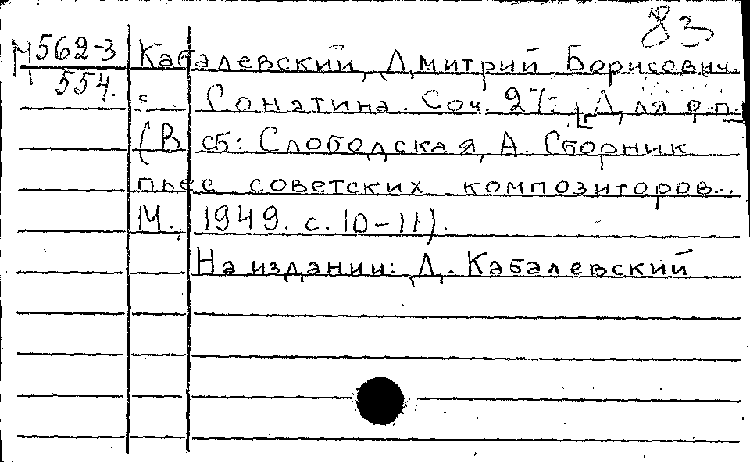 83
М562-3 Кабалевский, Дмитрий Борисович.
554. Сонатина. Соч. 27. [Для ф.п.
(В сб: Слободская, А. Сборник
пьес советских композиторов..
М., 1949. с. 10-11).
На издании: Д. Кабалевский